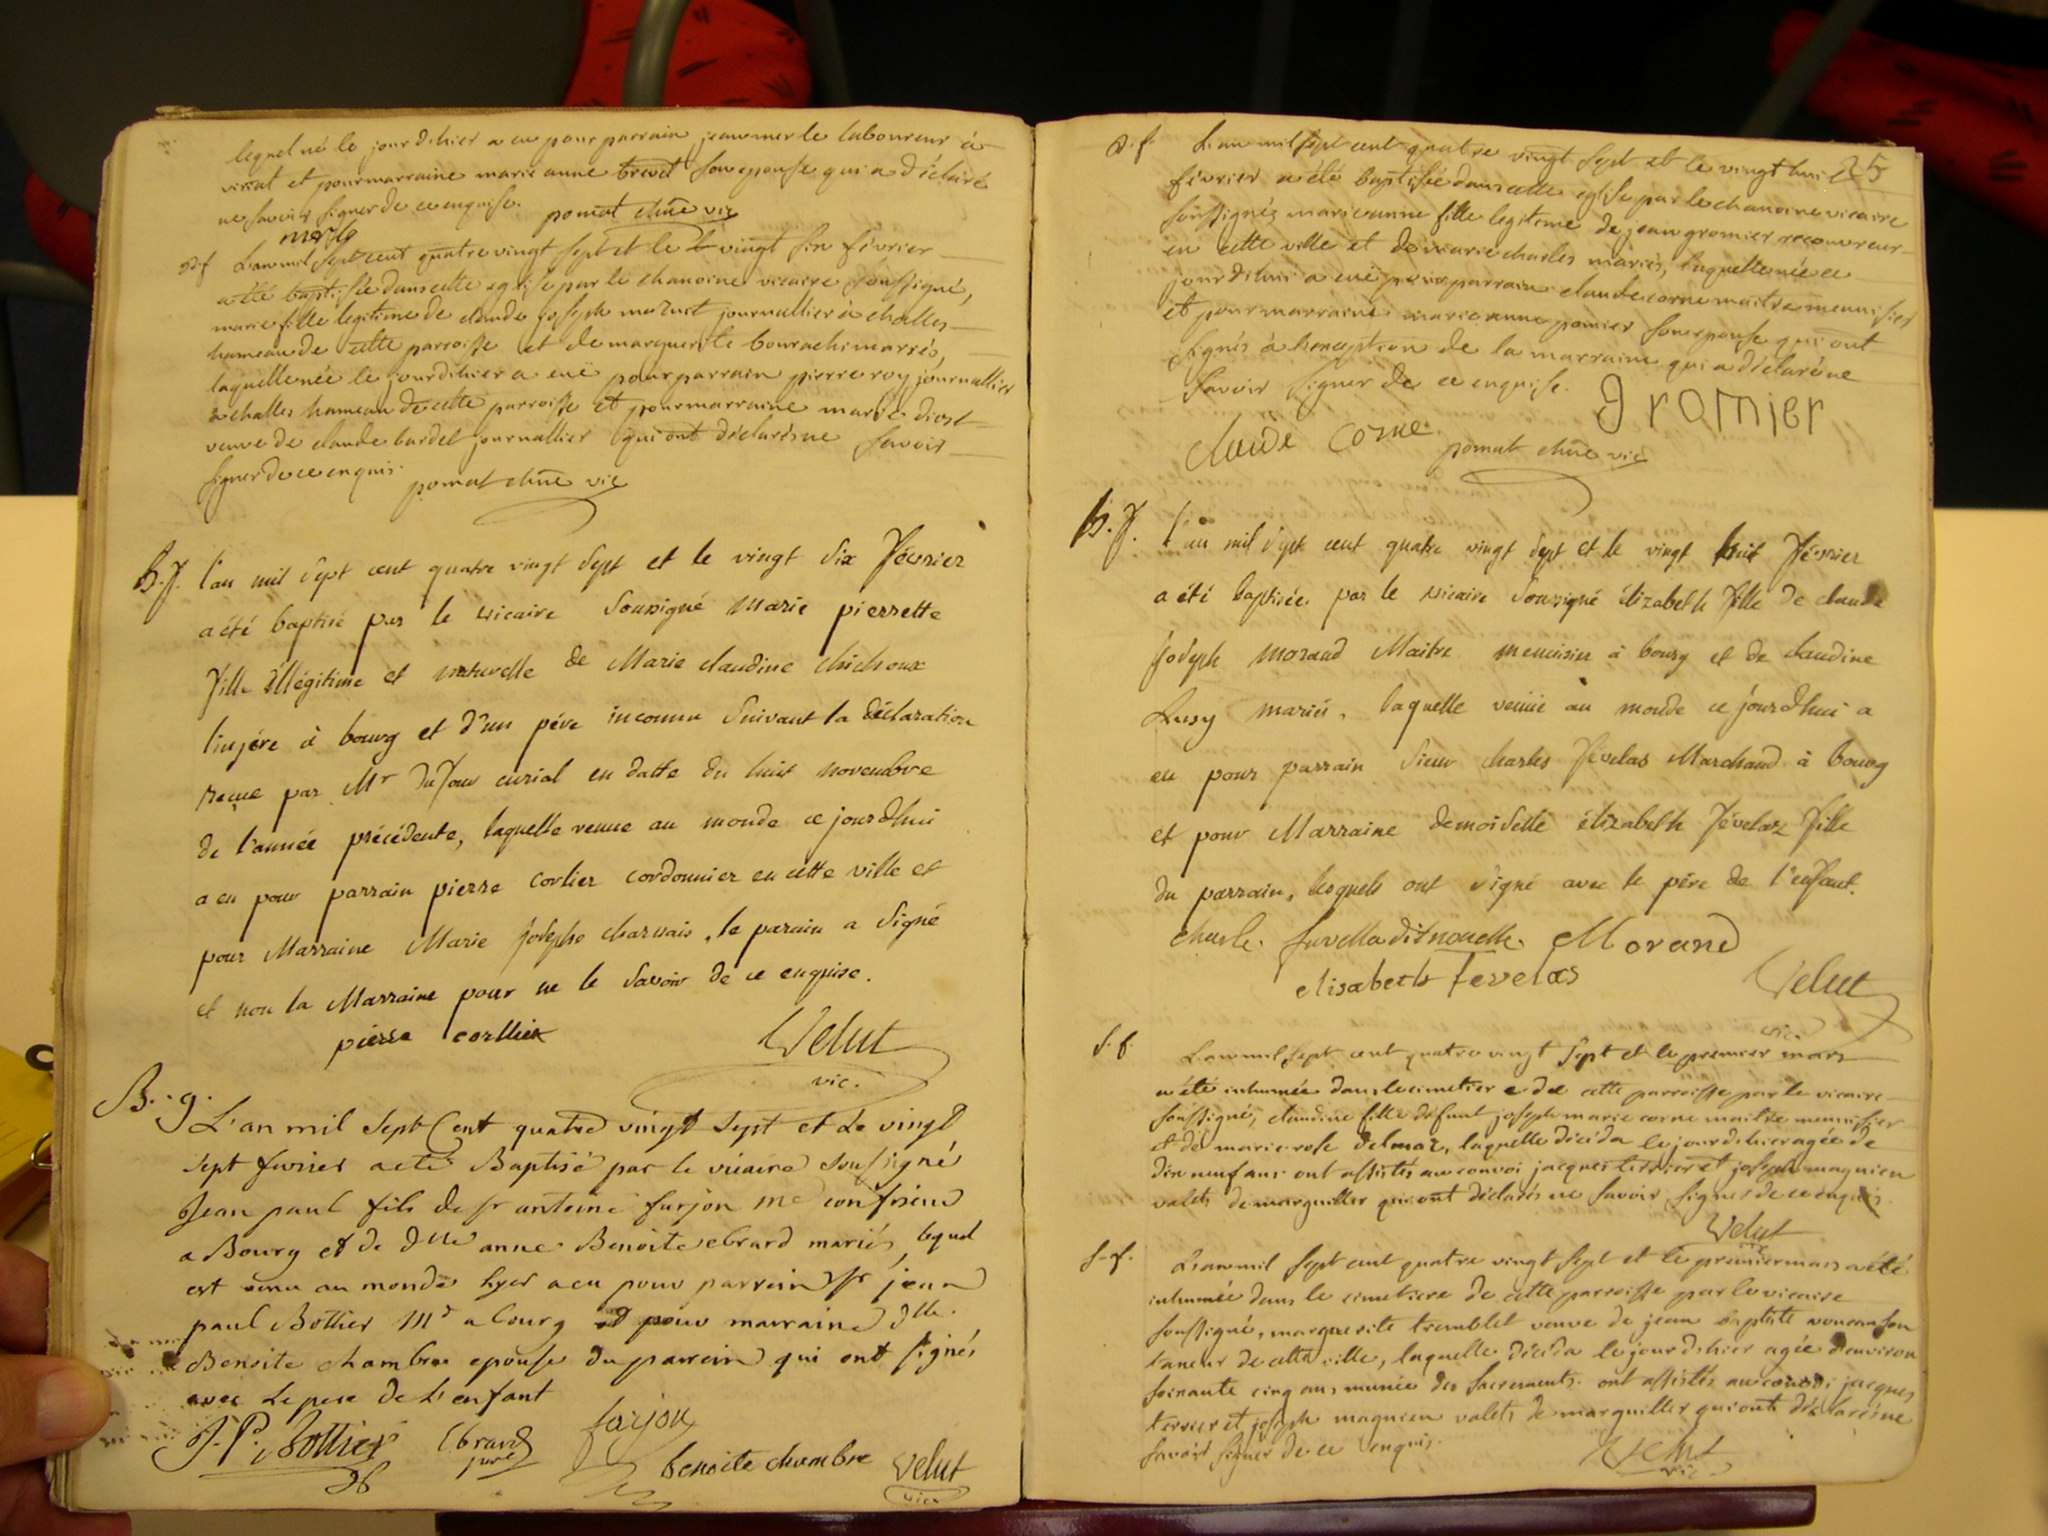 lequel né le jour d'hier a eu pour parrain jean merle laboureur à
viriat et pour marraine marie anne brevet son epouse qui a déclaré
ne savoir signer de ce enquise. pomat chne vic
merle
B.f L'an mil sept cent quatre vingt sept et le vingt six février
a été baptisée dans cette eglise par le chanoine vicaire soussigné,
marie fille legitime de claude joseph mazuit journallier à challes
hameau de cette parroisse et de marguerite bourachi mariés,
laquelle née le jour d'hier a eüe pour parrain pierre roy journallier
à challes hameau de cette parroisse et pour marraine marie diost
veuve de claude bardet journallier qui ont déclarés ne savoir
signer de ce enquis. pomat chne vic
B.f. l'an mil sept cent quatre vingt sept et le vingt six février
a été baptisé par le vicaire soussigné Marie pierrette
fille illégitime et naturelle de Marie claudine chichoux
lingère à bourg et d'un père inconnu suivant la déclaration
reçue par Mr dufour curial en datte du huit novembre
de l'année précédente, laquelle venue au monde ce jourdhui
a eu pour parrain pierre corlier cordonnier en cette ville et
pour Marraine Marie josephe charvais, le parain a signé
et non la Marraine pour ne le savoir de ce enquise.
pierre corllier Velut
vic.
B..g. L'an mil sept Cent quatre vingt sept et le vingt
sept fevrier a eté Baptisé par le vicaire soussigné
Jean paul fils de sr antoine farjon md confiseur
a Bourg et de dlle anne Benoite ebrard mariés, lequel
est venu au monde hyer a eu pour parrein sr jean
paul Bottier Md a bourg et pour marraine dlle
Benoite chambre epouse du parrein qui ont signés
avec le pere de l'enfant
J. P. Bottier Ebrard farjon
benoite chambre Velut
vic.
25
B.f. L'an mil sept cent quatre vingt sept et le vingt huit
février a été baptisée dans cette eglise par le chanoine vicaire
soussignés marie anne fille legitime de jean gromier recouvreur
en cette ville et de marie charles mariés, laquelle née ce
jourdhui a eüe pour parrain claude corne maitre menuisier
et pour marraine marie anne pomier son epouse qui ont
signés à l'exception de la marraine qui a déclaré ne
savoir signer de ce enquise. Gromier
claude corne. pomat chne vic
B.f. l'an mil sept cent quatre vingt sept et le vingt huit février
a été baptisée par le vicaire soussigné élizabeth fille de claude
joseph morand Maitre menuisier à bourg et de claudine
Rusy mariés, laquelle venüe au monde ce jourdhui a
eu pour parrain sieur charles févelas Marchand à bourg
et pour Marraine demoiselle élizabeth févelas fille
du parrain, lesquels ont signé avec le père de l'enfant.
charle. Morand
elisabeth fevelas Velut
vic.
S.f. L'an mil sept cent quatre vingt sept et le premier mars
a été inhumée dans le cimetiere de cette parroisse par le vicaire
soussigné, claudine fille défunt joseph marie corne maitre menuisier
et de marie rose delmaz, laquelle décéda le jour d'hier agée de
dix neuf ans ont assistés au convoi jacques terrier et joseph magnien
valets de marguiller qui ont déclarés ne savoir signer de ce enquis.
Velut
vic
S.f. L'an mil sept cent quatre vingt sept et le premier mars a été
inhumée dans le cimetiere de cette parroisse par le vicaire
soussigné, marguerite tremblet veuve de jean baptiste
taneur de cette ville, laquelle décéda le jour d'hier agée d'environ
soixante cinq ans munie des sacrements. ont assistés au convoi jacques
terrier et joseph magnien valets de marguillier qui ont déclarés ne
savoir signer de ce enquis. Velut
vic